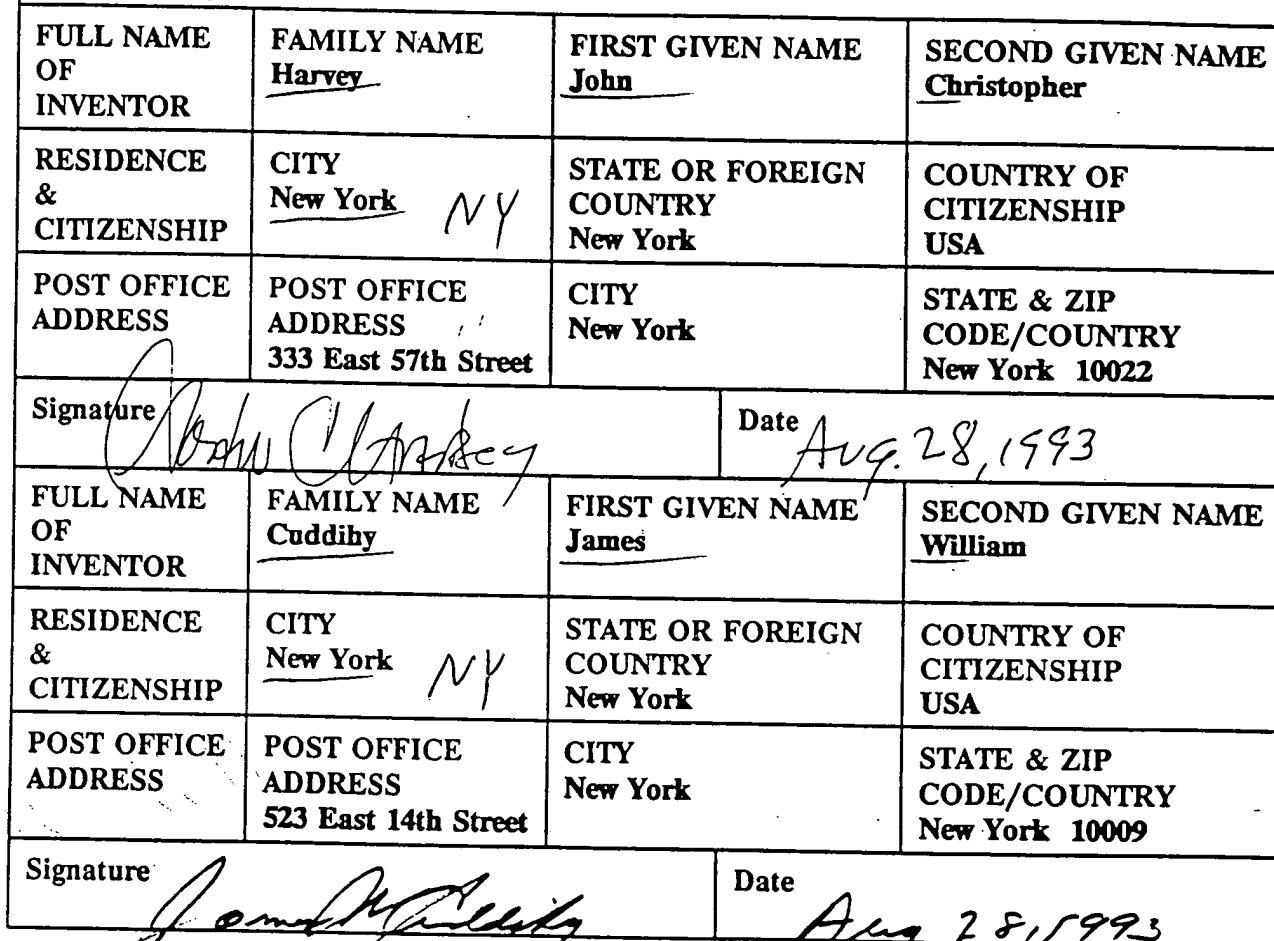 FULL NAME OF INVENTOR
FAMILY NAME
Harvey
FIRST GIVEN NAME
John
SECOND GIVEN NAME
Christopher
RESIDENCE & CITIZENSHIP
CITY
New York NY
STATE OR FOREIGN COUNTRY
New York
COUNTRY OF CITIZENSHIP
USA
POST OFFICE ADDRESS
POST OFFICE ADDRESS
333 East 57th Street
CITY
New York
STATE & ZIP CODE/COUNTRY
New York 10022
Signature John C Harvey
Date Aug. 28, 1993
FULL NAME OF INVENTOR
FAMILY NAME
Cuddihy
FIRST GIVEN NAME
James
SECOND GIVEN NAME
William
RESIDENCE & CITIZENSHIP
CITY
New York NY
STATE OR FOREIGN COUNTRY
New York
COUNTRY OF CITIZENSHIP
USA
POST OFFICE ADDRESS
POST OFFICE ADDRESS
523 East 14th Street
CITY
New York
STATE & ZIP CODE/COUNTRY
New York 10009
Signature James W Cuddihy
Date Aug 28, 1993